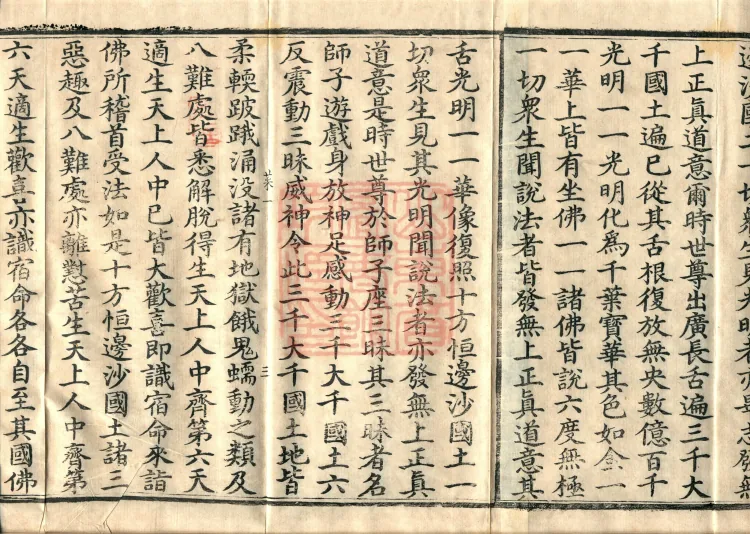 發無
上正眞道意爾時世尊出廣長舌遍三千大
千國土遍已從其舌根復放無央數億百千
光明一一光明化爲千葉寶華其色如金一
一華上皆有坐佛一一諸佛皆說六度無極
一切衆生聞說法者皆發無上正眞道意其
舌光明一一華像復照十方恒邊沙國土一
切衆生見其光明聞說法者亦發無上正眞
道意是時世尊於師子座三昧其三昧者名
師子遊戲身放神足感動三千大千國土六
反震動三昧威神令此三千大千國土地皆
柔輭跛䟰涌沒諸有地獄餓鬼蠕動之類及
菜一 三
八難處皆悉解脫得生天上人中齊第六天
適生天上人中已皆大歡喜即識宿命來詣
佛所稽首受法如是十方恒邊沙國土諸三
惡趣及八難處亦離懃苦生天上人中齊第
六天適生歡喜亦識宿命各各自至其國佛